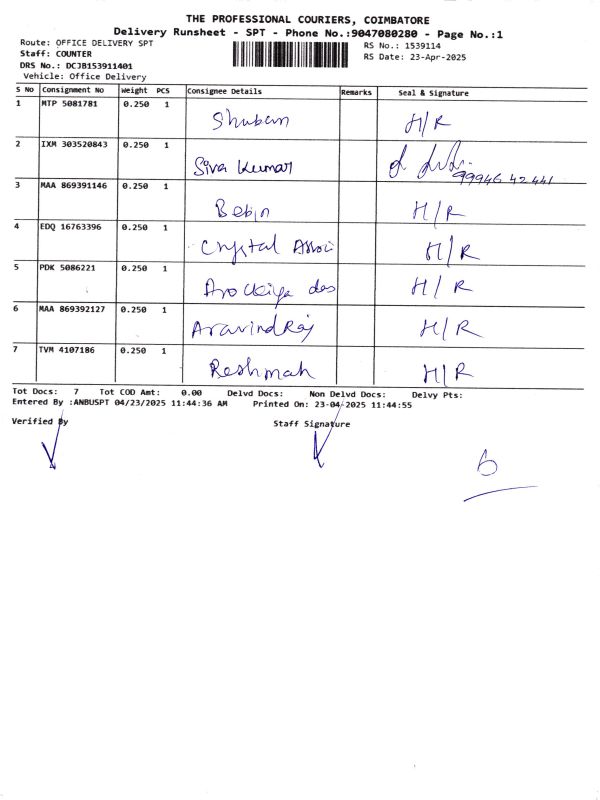 THE PROFESSIONAL COURIERS, COIMBATORE
Delivery Runsheet - SPT - Phone No.:9047080280 - Page No.:1
Route: OFFICE DELIVERY SPT RS No.: 1539114
Staff: COUNTER RS Date: 23-Apr-2025
DRS No.: DCJB153911401
Vehicle: Office Delivery
S No Consignment No Weight PCS Consignee Details Remarks Seal & Signature
1 MTP 5081781 0.250 1 Shuban H/R
2 IXM 303520843 0.250 1 Siva Kumar 99946 42441
3 MAA 869391146 0.250 1 Bebin H/R
4 EDQ 16763396 0.250 1 Crystal Associ H/R
5 PDK 5086221 0.250 1 Arockiya das H/R
6 MAA 869392127 0.250 1 AravindRaj H/R
7 TVM 4107186 0.250 1 Reshmah H/R
Tot Docs: 7 Tot COD Amt: 0.00 Delvd Docs: Non Delvd Docs: Delvy Pts:
Entered By :ANBUSPT 04/23/2025 11:44:36 AM Printed On: 23-04-2025 11:44:55
Verified By Staff Signature
6